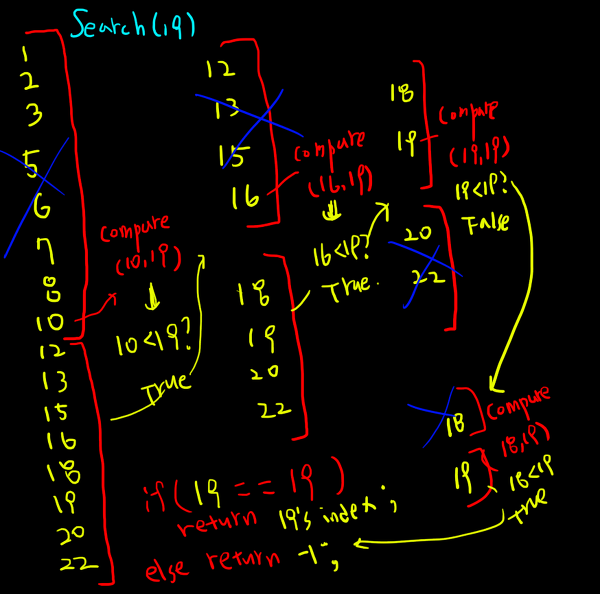 Search(19)
1
2
3
5
6
7
8
10
12
13
15
16
18
19
20
22
compare
(10,19)
10<19?
True
12
13
15
16
18
19
20
22
compare
(16,19)
16<19?
True.
18
19
20
22
compare
(19,19)
19<19?
False
18
19
compare
18,19)
18<19
True
if(19 == 19)
return 19's index;
else return -1;